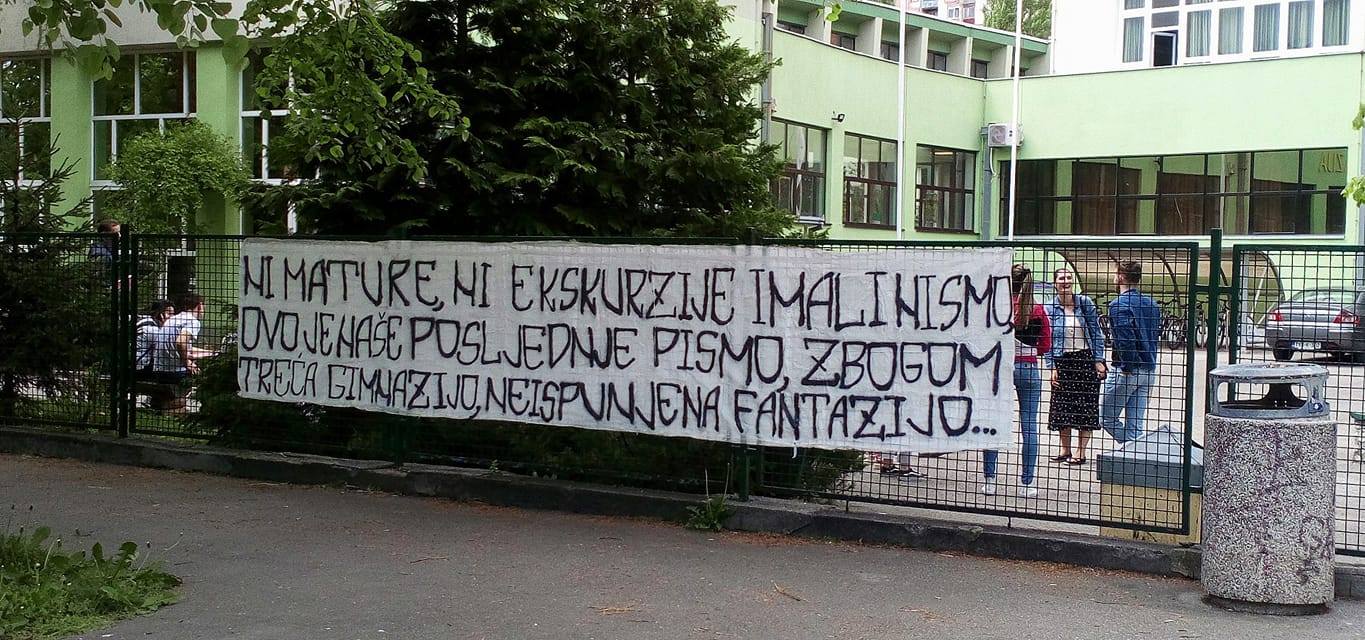 NI MATURE, NI EKSKURZIJE IMALI NISMO,
OVO JE NAŠE POSLJEDNJE PISMO, ZBOGOM
TREĆA GIMNAZIJO, NEISPUNJENA FANTAZIJO...